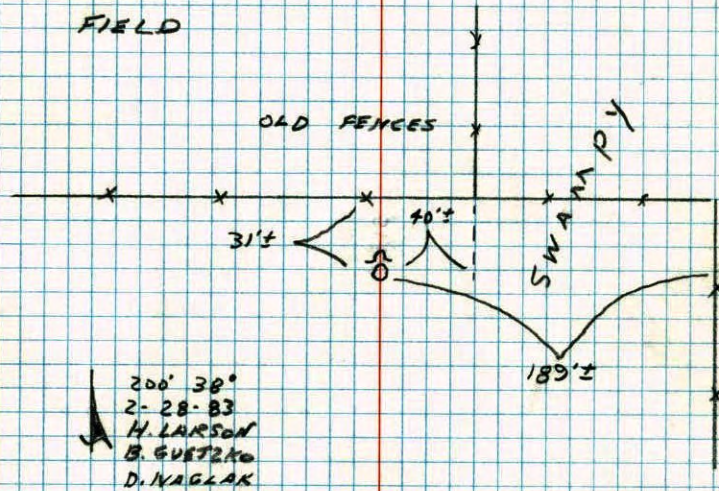 FIELD
OLD FENCES
SWAMPY
40'±
31'±
189'±
200' 38°
2-28-83
H. LARSON
B. GUETZKO
D. IVAGLAK